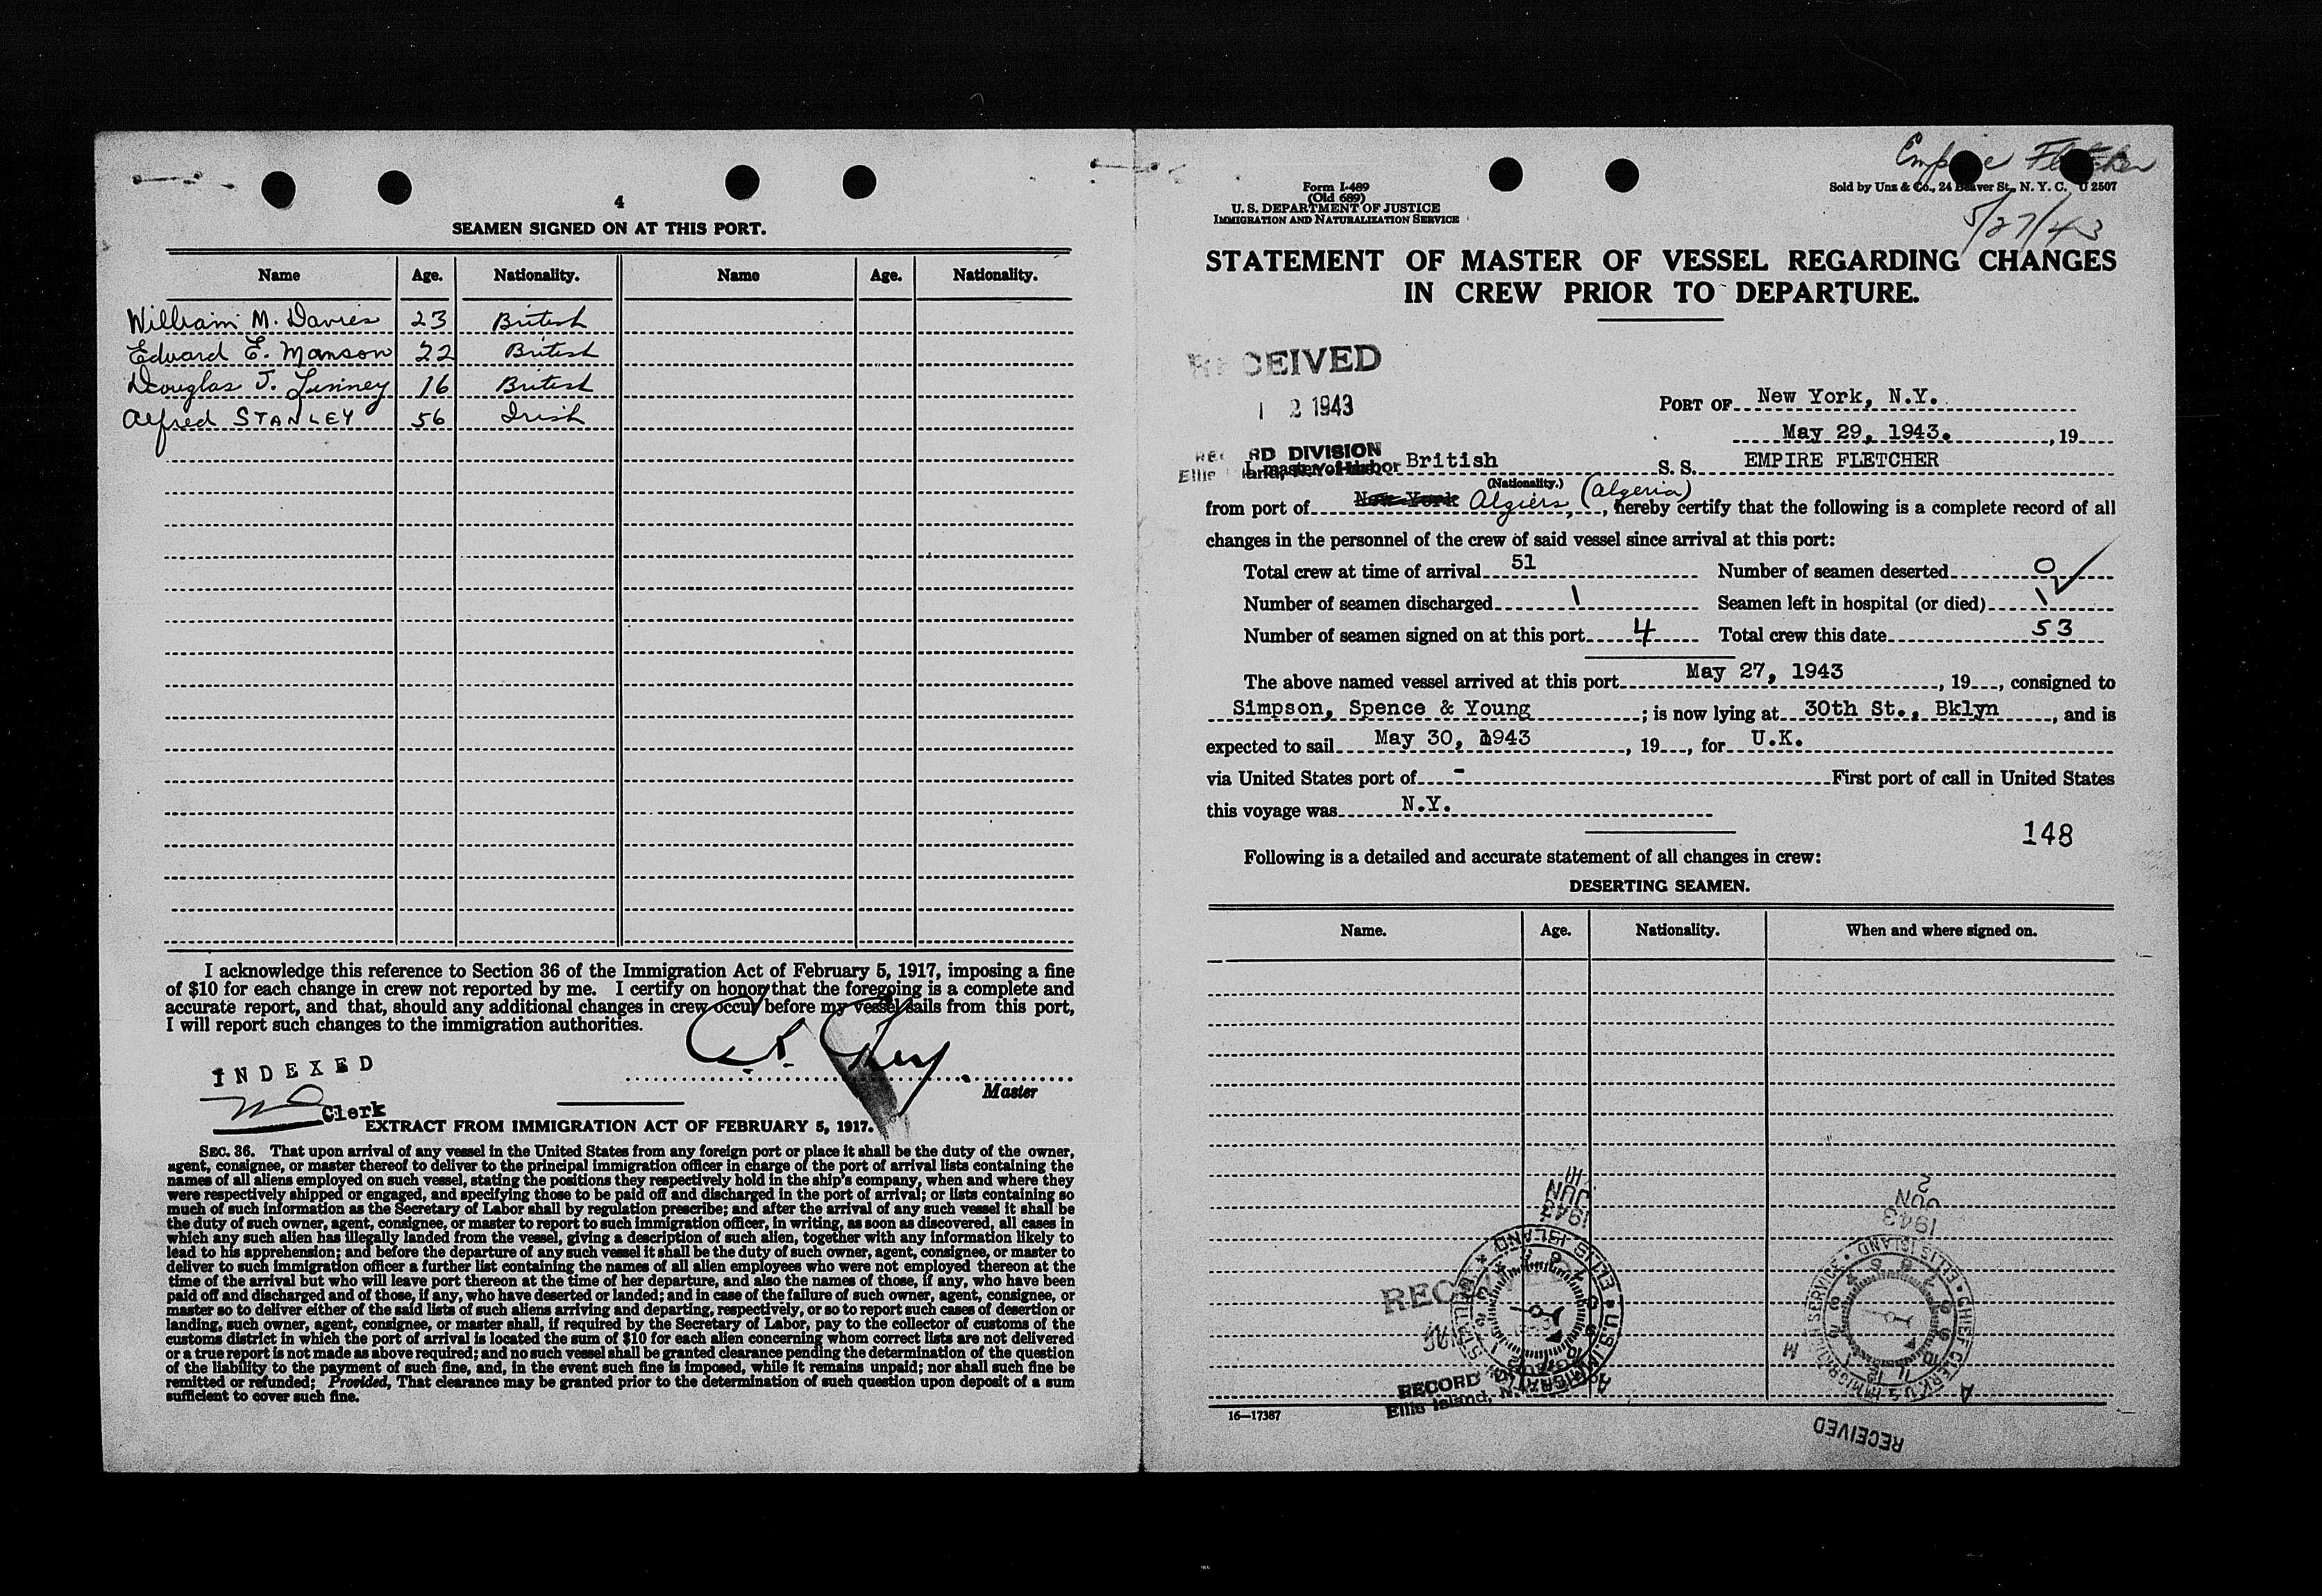 4
SEAMEN SIGNED ON AT THIS PORT.
Name Age. Nationality. Name Age. Nationality.
William M. Davies 23 British
Edward E. Manson 22 British
Douglas J. Linney 16 British
Alfred STANLEY 56 Irish
I acknowledge this reference to Section 36 of the Immigration Act of February 5, 1917, imposing a fine
of $10 for each change in crew not reported by me. I certify on honor that the foregoing is a complete and
accurate report, and that, should any additional changes in crew occur before my vessel sails from this port,
I will report such changes to the immigration authorities.
INDEXED
Master
Clerk
EXTRACT FROM IMMIGRATION ACT OF FEBRUARY 5, 1917.
SEC. 36. That upon arrival of any vessel in the United States from any foreign port or place it shall be the duty of the owner,
agent, consignee, or master thereof to deliver to the principal immigration officer in charge of the port of arrival lists containing the
names of all aliens employed on such vessel, stating the positions they respectively hold in the ship's company, when and where they
were respectively shipped or engaged, and specifying those to be paid off and discharged in the port of arrival; or lists containing so
much of such information as the Secretary of Labor shall by regulation prescribe; and after the arrival of any such vessel it shall be
the duty of such owner, agent, consignee, or master to report to such immigration officer, in writing, as soon as discovered, all cases in
which any such alien has illegally landed from the vessel, giving a description of such alien, together with any information likely to
lead to his apprehension; and before the departure of any such vessel it shall be the duty of such owner, agent, consignee, or master to
deliver to such immigration officer a further list containing the names of all alien employees who were not employed thereon at the
time of the arrival but who will leave port thereon at the time of her departure, and also the names of those, if any, who have been
paid off and discharged and of those, if any, who have deserted or landed; and in case of the failure of such owner, agent, consignee, or
master so to deliver either of the said lists of such aliens arriving and departing, respectively, or so to report such cases of desertion or
landing, such owner, agent, consignee, or master shall, if required by the Secretary of Labor, pay to the collector of customs of the
customs district in which the port of arrival is located the sum of $10 for each alien concerning whom correct lists are not delivered
or a true report is not made as above required; and no such vessel shall be granted clearance pending the determination of the question
of the liability to the payment of such fine, and, in the event such fine is imposed, while it remains unpaid; nor shall such fine be
remitted or refunded; Provided, That clearance may be granted prior to the determination of such question upon deposit of a sum
sufficient to cover such fine.
Empire Fletcher
Form I-489
(Old 689)
U. S. DEPARTMENT OF JUSTICE
IMMIGRATION AND NATURALIZATION SERVICE
Sold by Unz & Co., 24 Beaver St., N. Y. C. U 2507
5/27/43
STATEMENT OF MASTER OF VESSEL REGARDING CHANGES
IN CREW PRIOR TO DEPARTURE.
RECEIVED
2 1943
RECORD DIVISION
PORT OF New York, N.Y.
May 29, 1943. , 19
I, master of the British S. S. EMPIRE FLETCHER
(Nationality.)
from port of New York Algiers, (Algeria) , hereby certify that the following is a complete record of all
changes in the personnel of the crew of said vessel since arrival at this port:
Total crew at time of arrival 51 Number of seamen deserted 0
Number of seamen discharged 1 Seamen left in hospital (or died) 1
Number of seamen signed on at this port 4 Total crew this date 53
The above named vessel arrived at this port May 27, 1943 , 19 , consigned to
Simpson, Spence & Young ; is now lying at 30th St., Bklyn , and is
expected to sail May 30, 1943 , 19 , for U.K.
via United States port of - First port of call in United States
this voyage was N.Y.
148
Following is a detailed and accurate statement of all changes in crew:
DESERTING SEAMEN.
Name. Age. Nationality. When and where signed on.
1943 JUN
1943 JUN 2
U.S. IMMIGRATION
ELLIS ISLAND
CHIEF CLERK U S IMMIGRATION SERVICE • ELLIS ISLAND
RECORD
Ellis Island, N.
16—17387
RECEIVED